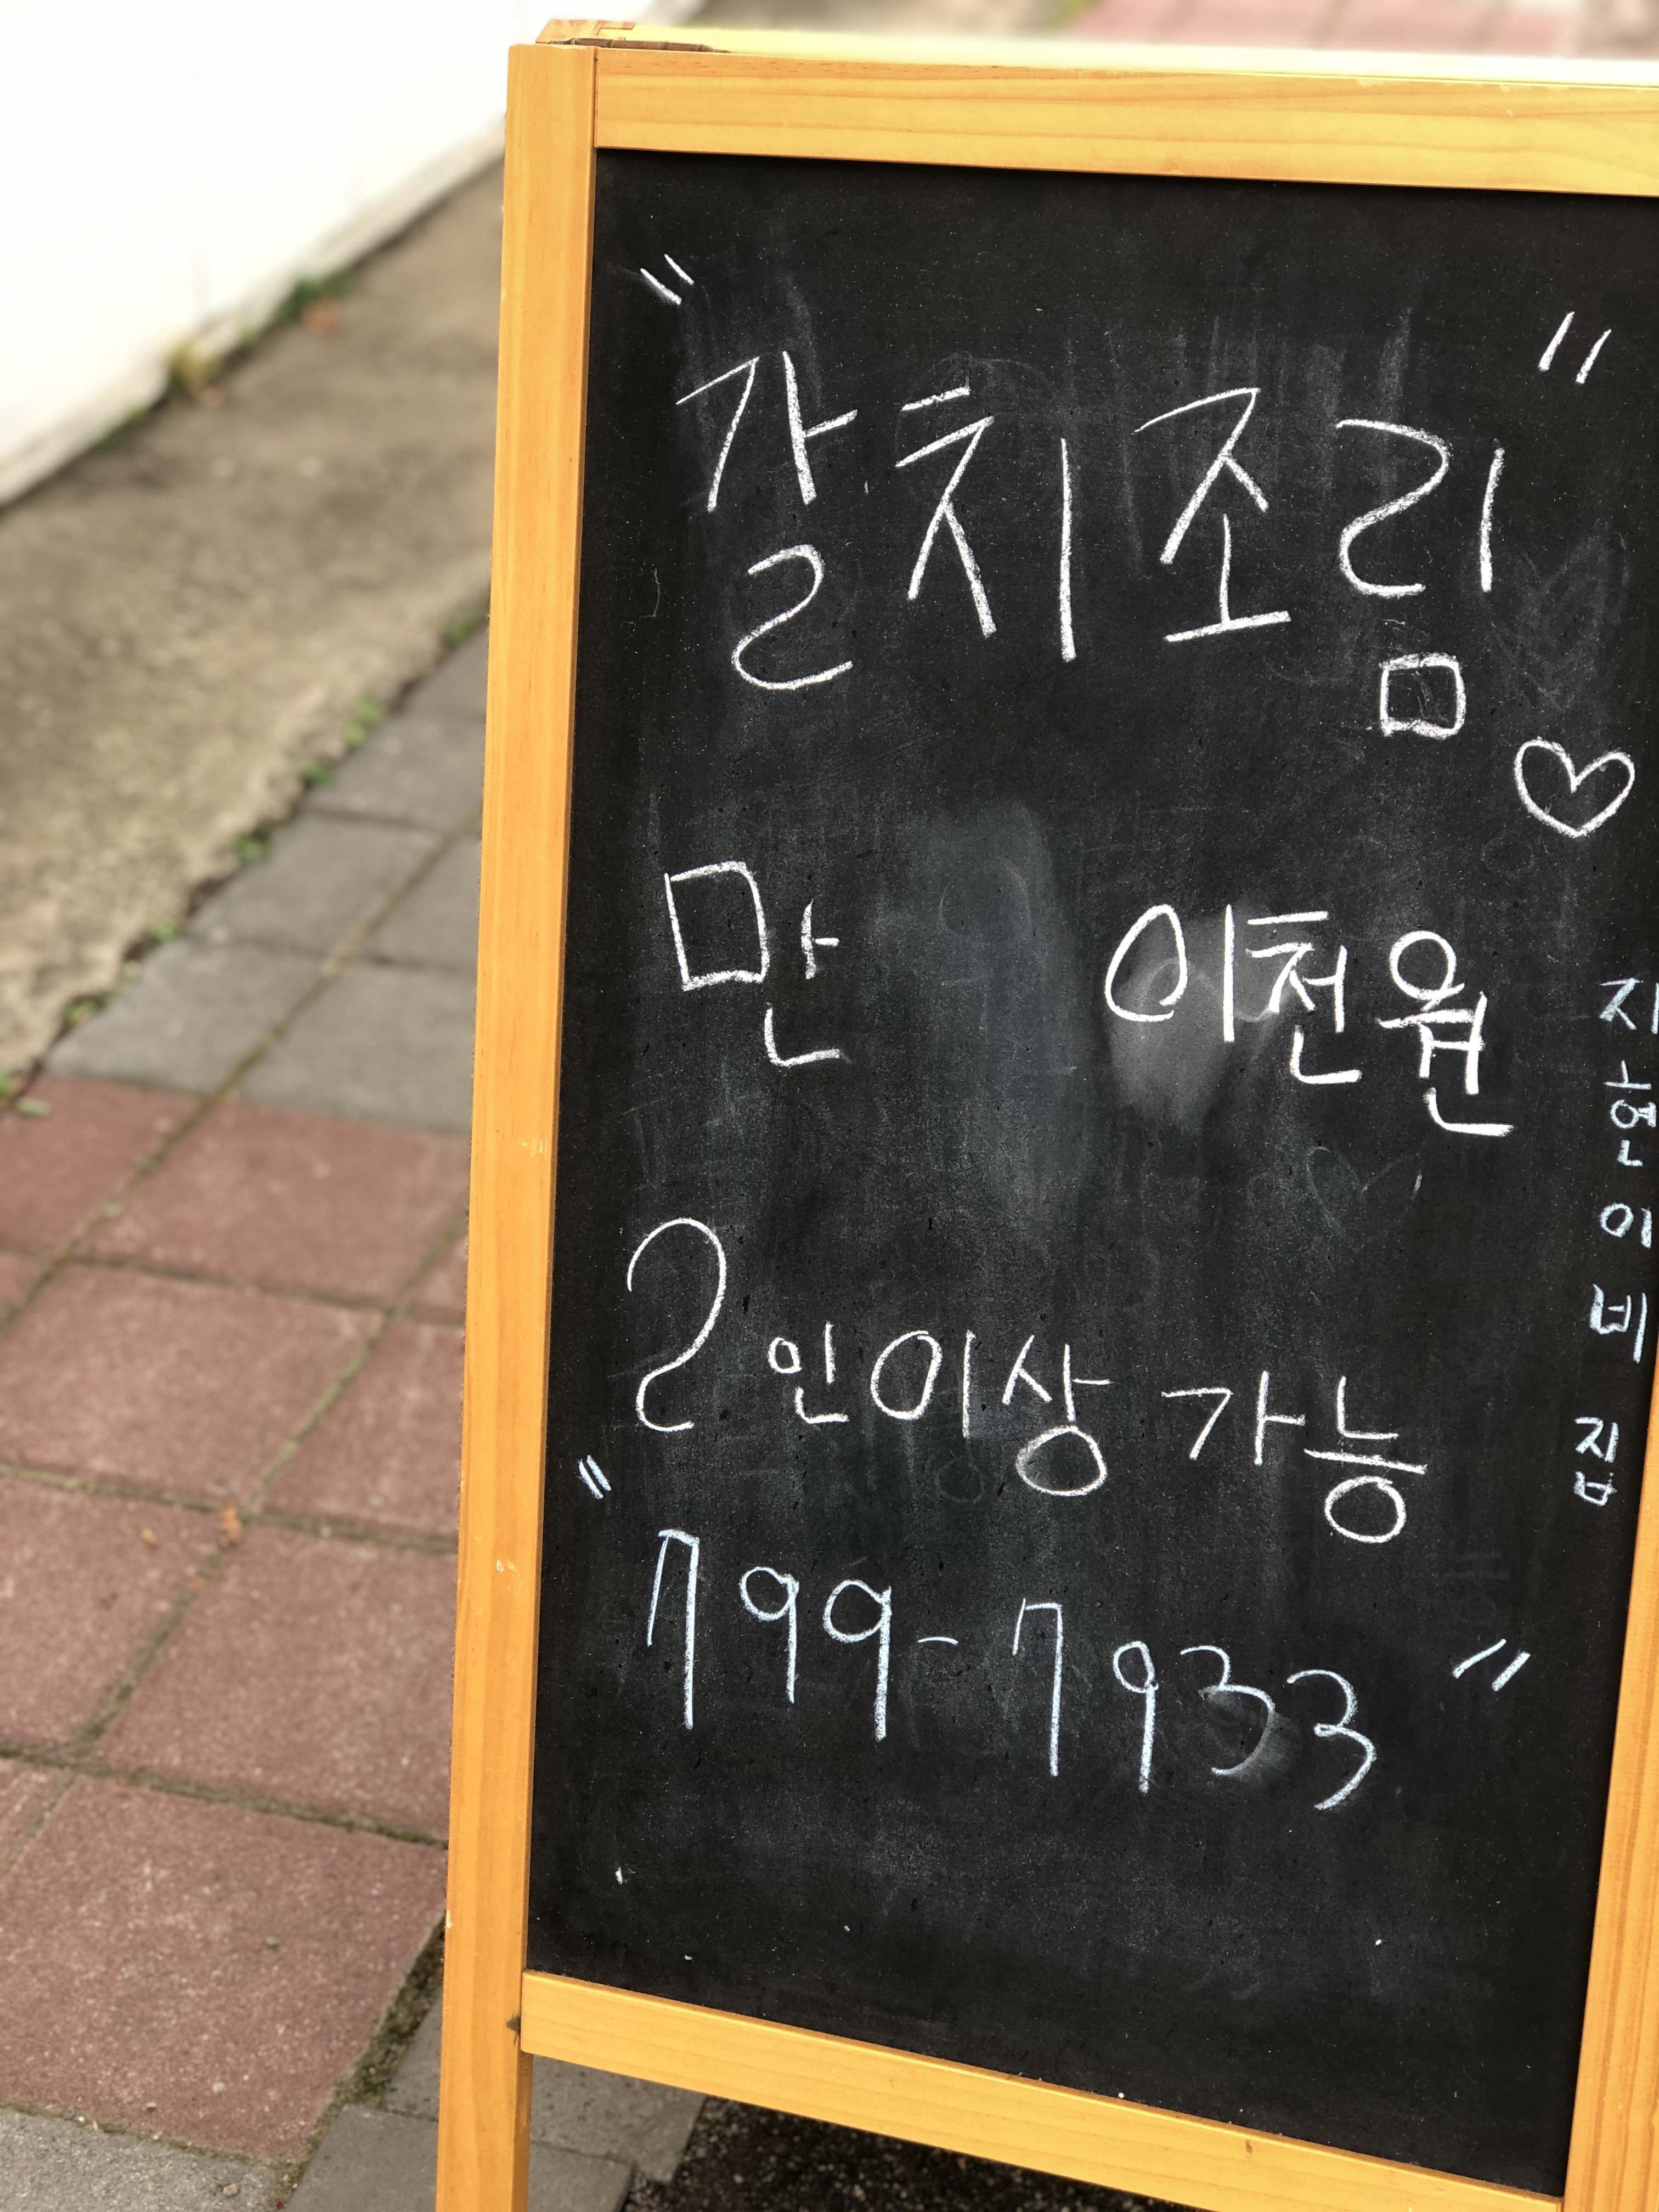 "갈치조림"
만 이천원
2인이상 가능
"799-7933"
지현이네집